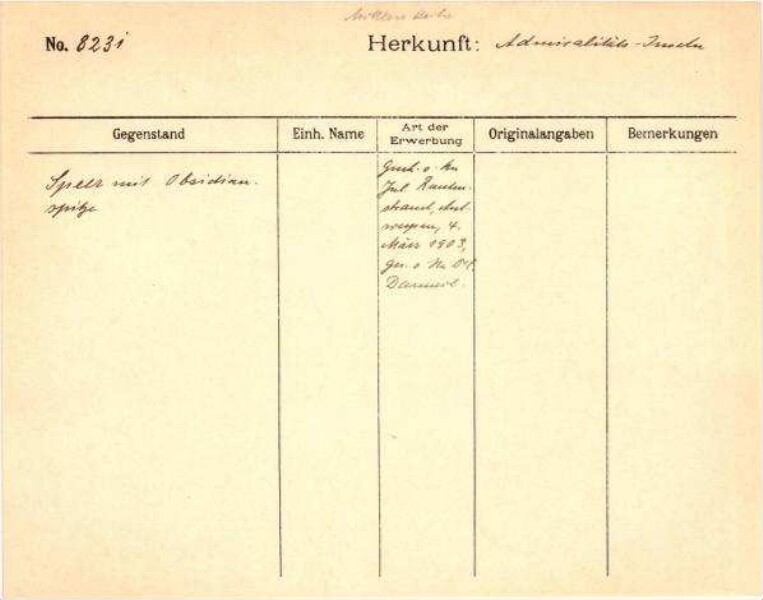 No. 8231
Herkunft: Admiralitäts-Inseln
Gegenstand
Einh. Name
Art der
Erwerbung
Originalangaben
Bemerkungen
Speer mit Obsidian-
spitze
v. Hn
Jul. Rauten-
strauch, Ant-
werpen, 4.
März 1903,
v. Hn